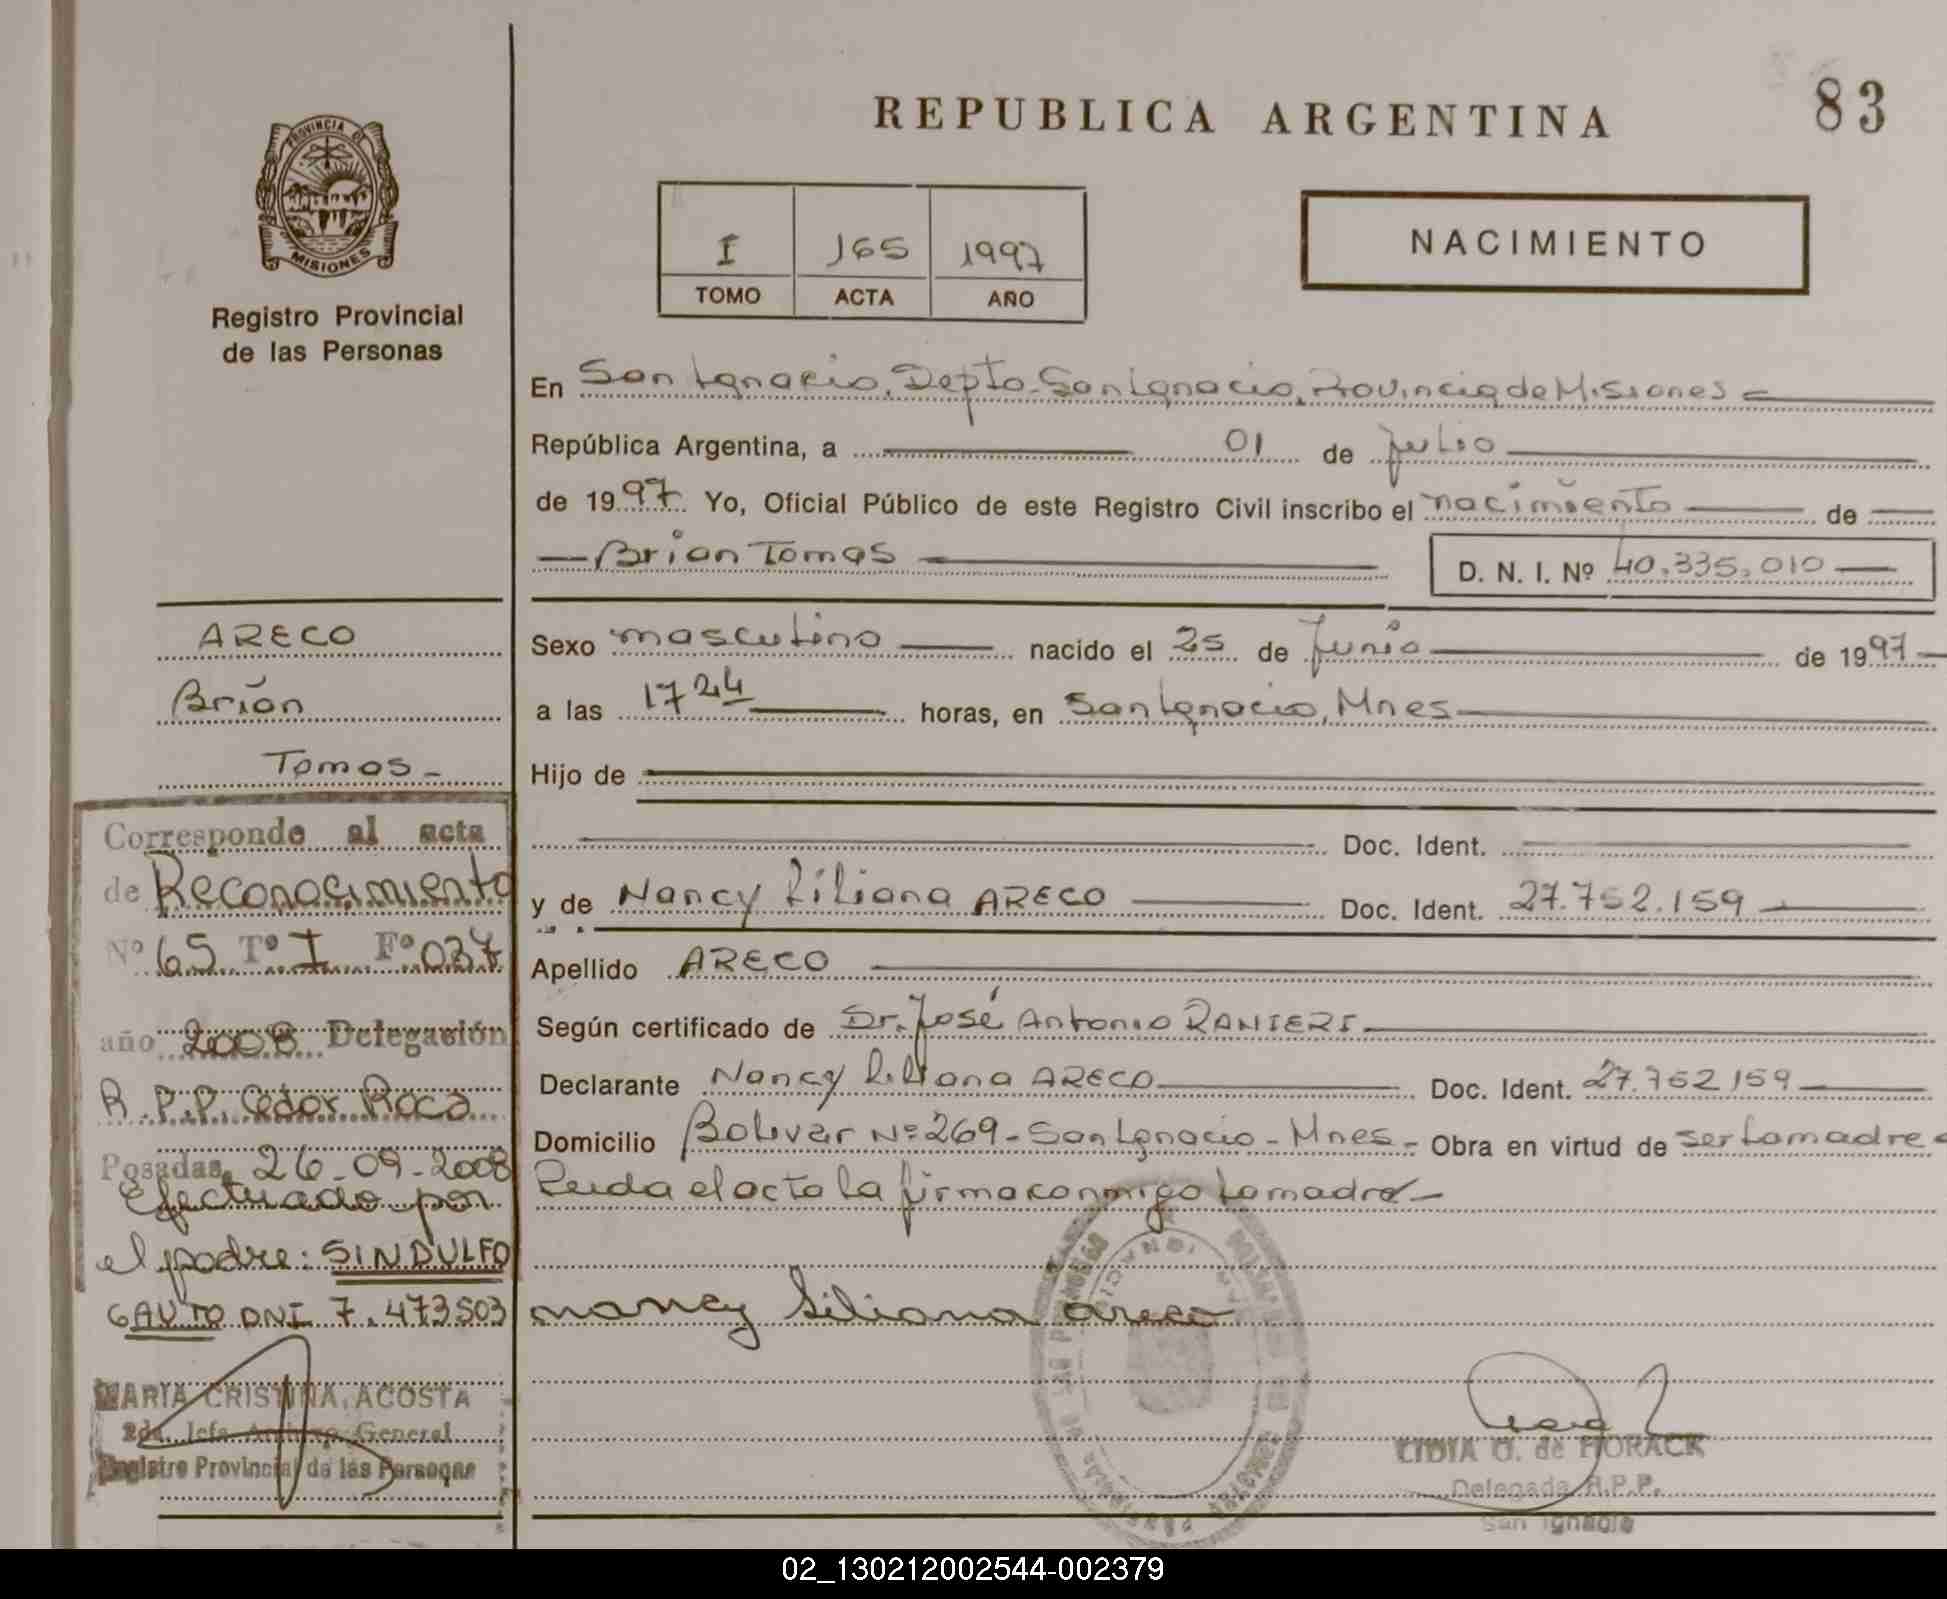 REPUBLICA ARGENTINA
83
PROVINCIA DE
MISIONES
Registro Provincial
de las Personas
I 165 1997
TOMO ACTA AÑO
NACIMIENTO
En San Ignacio, Depto. San Ignacio, Provincia de Misiones
República Argentina, a 01 de Julio
de 1997 Yo, Oficial Público de este Registro Civil inscribo el nacimiento de
Brian Tomas D. N. I. Nº 40.335.010
Sexo masculino nacido el 25 de Junio de 1997
a las 17 24 horas, en San Ignacio, Mnes
Hijo de
Doc. Ident.
y de Nancy Liliana ARECO Doc. Ident. 27.752.159
Apellido ARECO
Según certificado de Dr. José Antonio RANIERI
Declarante Nancy Liliana ARECO Doc. Ident. 27.752.159
Domicilio Bolivar Nº 269 - San Ignacio - Mnes - Obra en virtud de ser la madre
Leida el acta la firma conmigo la madre -
nancy Liliana areco
LIDIA O. de HORACK
Delegada R.P.P.
San Ignacio
ARECO
Brian
Tomas -
Corresponde al acta
de Reconocimiento
Nº 65 Tº I Fº 037
año 2008 Delegación
R.P.P. Cedor Roca
Posadas, 26-09-2008
Efectuado por
el padre: SINDULFO
GAUTO DNI 7.473503
MARIA CRISTINA ACOSTA
2da. Jefa Archivo General
Registro Provincial de las Personas
02_130212002544-002379